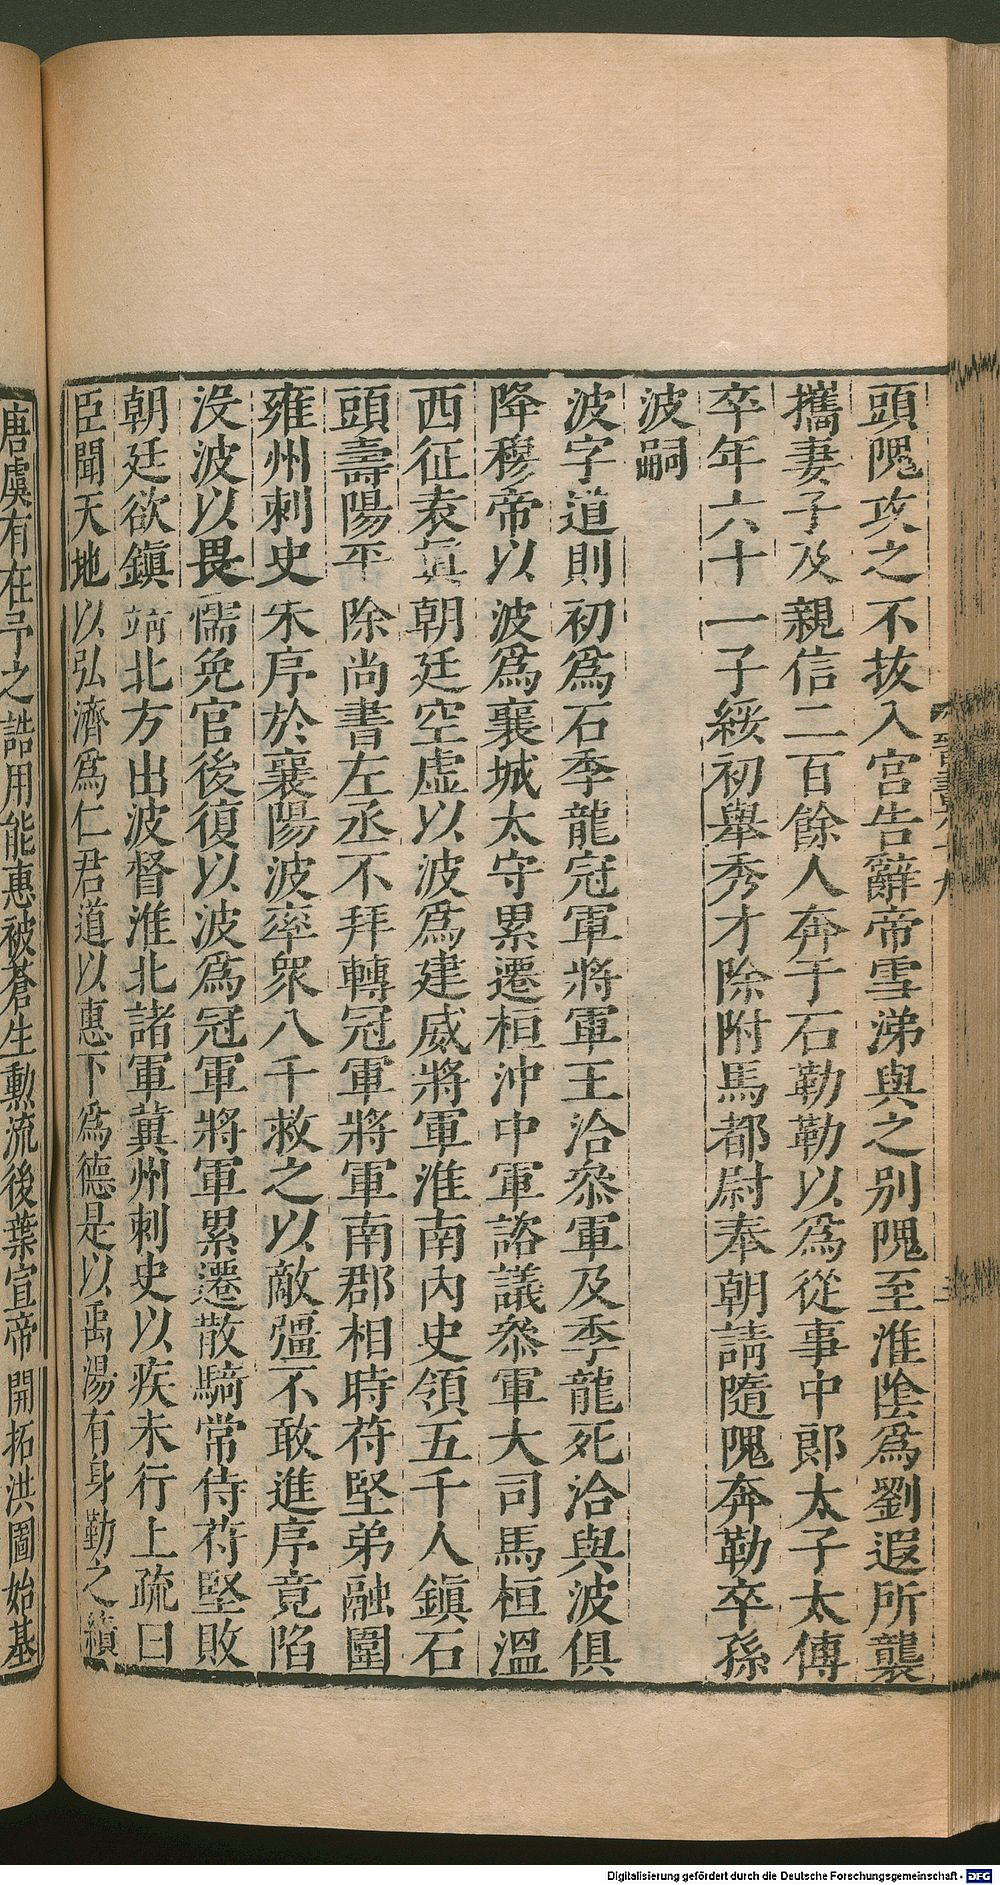 頭隗攻之不拔入宮告辭帝雪涕與之别隗至淮陰爲劉遐所襲
攜妻子及親信二百餘人奔于石勒勒以爲從事中郎太子太傅
卒年六十一子綏初舉秀才除附馬都尉奉朝請隨隗奔勒卒孫
波嗣
波字道則初爲石季龍冠軍將軍王洽叅軍及季龍死洽與波俱
降穆帝以波爲襄城太守累遷桓沖中軍諮議叅軍大司馬桓溫
西征袁眞朝廷空虛以波爲建威將軍淮南內史領五千人鎮石
頭壽陽平除尚書左丞不拜轉冠軍將軍南郡相時苻堅弟融圍
雍州刺史朱序於襄陽波率衆八千救之以敵彊不敢進序竟陷
没波以畏懦免官後復以波爲冠軍將軍累遷散騎常侍苻堅敗
朝廷欲鎮靖北方出波督淮北諸軍冀州刺史以疾未行上疏曰
臣聞天地以弘濟爲仁君道以惠下爲德是以禹湯有身勤之績
唐虞有在予之誥用能惠被蒼生勲流後葉宣帝開拓洪圖始基
Digitalisierung gefördert durch die Deutsche Forschungsgemeinschaft - DFG